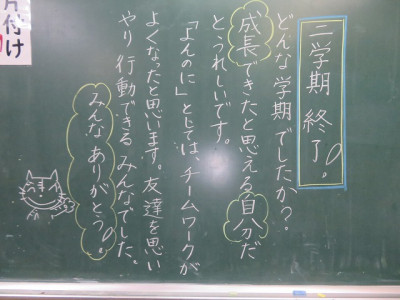 二学期 終了。
どんな学期でしたか?
成長できたと思える自分だ
とうれしいです。
「よんのに」としては、チームワークが
よくなったと思います。友達を思い
やり 行動できる みんなでした。
みんな ありがとう。
片付け